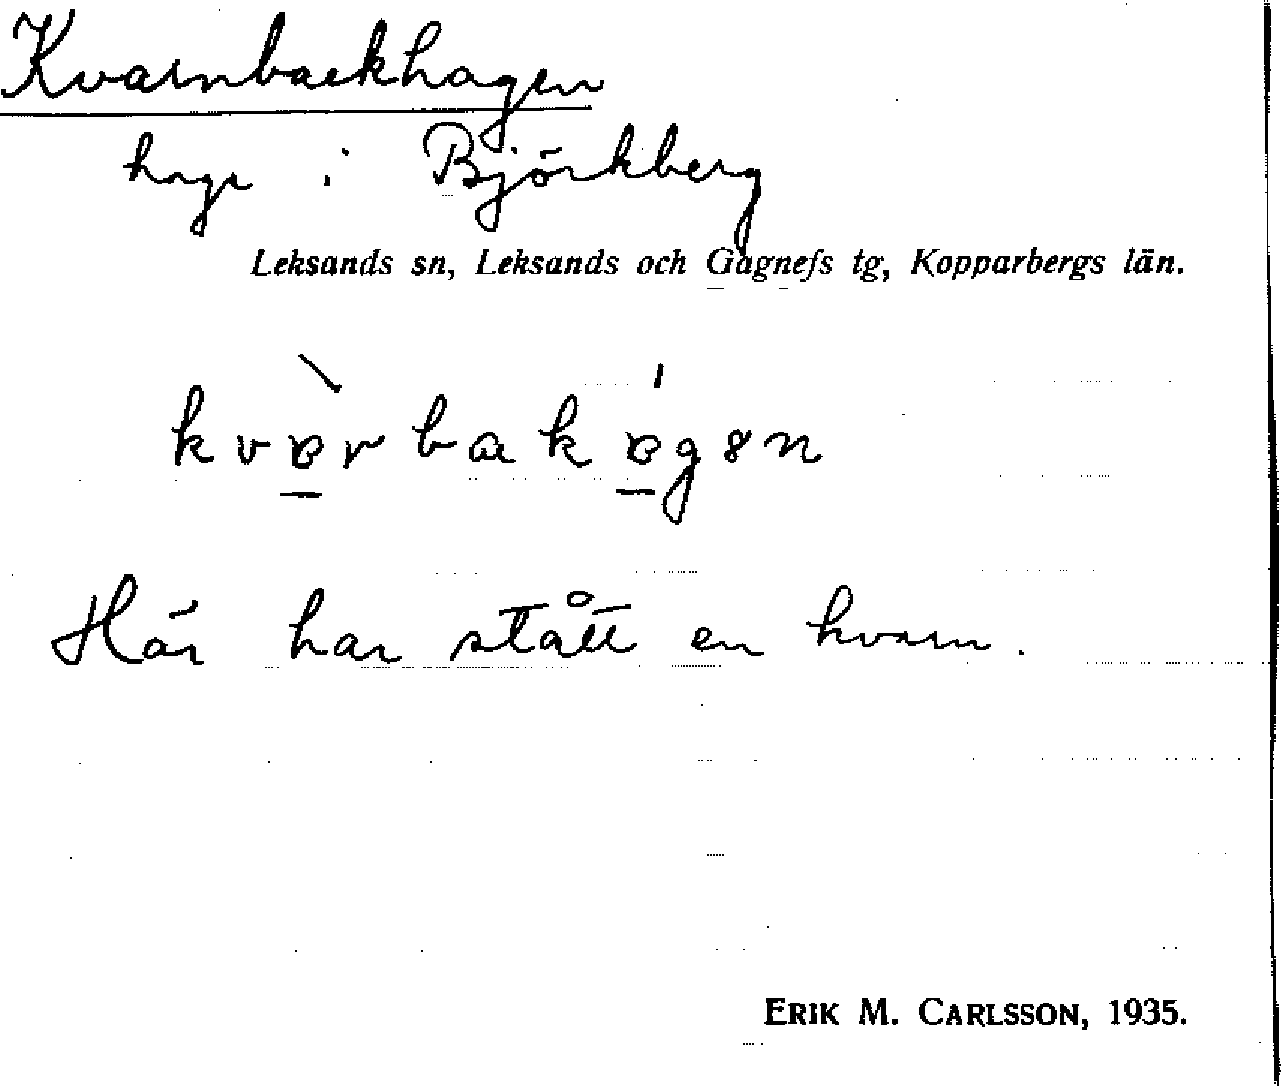 Kvarnbackhagen
hage i Björkberg
Leksands sn, Leksands och Gagnefs tg, Kopparbergs län.
Här har stått en kvarn.
ERIK M. CARLSSON, 1935.